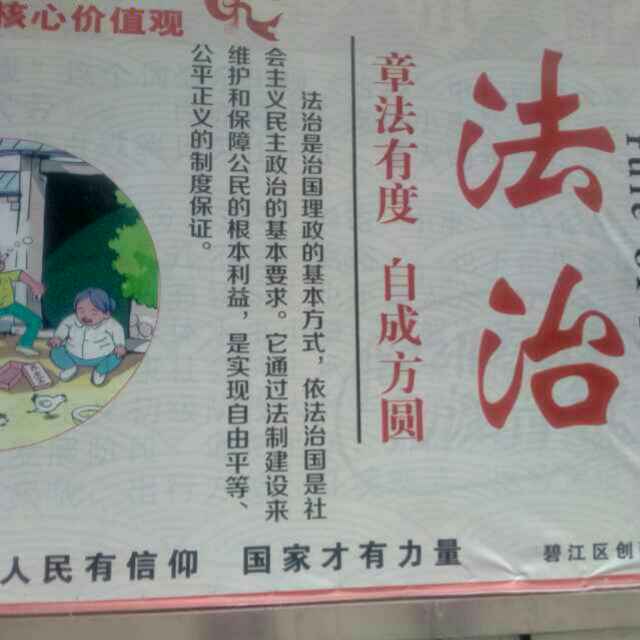 核心价值观
法治
章法有度 自成方圆
法治是治国理政的基本方式，依法治国是社
会主义民主政治的基本要求。它通过法制建设来
维护和保障公民的根本利益，是实现自由平等、
公平正义的制度保证。
人民有信仰 国家才有力量
碧江区创